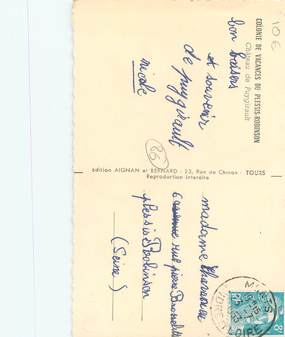 10€
COLONIE DE VACANCES DU PLESSIS-ROBINSON
Château de Puygirault
bon baisers
et souvenir
de puygirault
nicole
86
édition AIGNAN et BERNARD - 23, Rue de Chinon - TOURS
Reproduction Interdite
madame
6 rue pierre
plessis Robinson
(Seine)
LOIRE
8